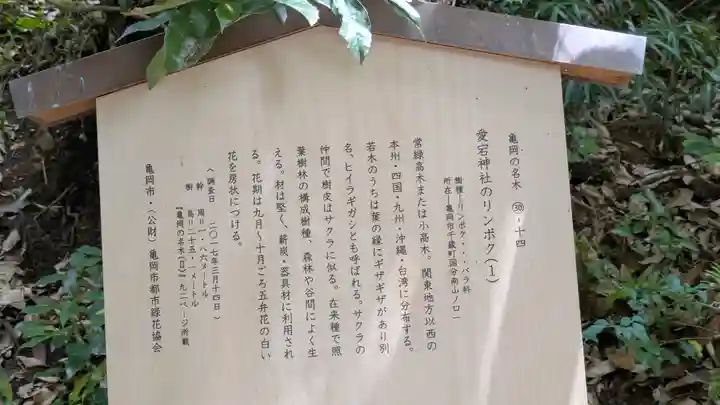 亀岡の名木 ㉚-十四
愛宕神社のリンボク(1)
樹種-リンボク・・・バラ科
所在-亀岡市千歳町国分南山ノ口
常緑高木または小高木。関東地方以西の
本州・四国・九州・沖縄・台湾に分布する。
若木のうちは葉の縁にギザギザがあり別
名、ヒイラギガシとも呼ばれる。サクラの
仲間で樹皮はサクラに似る。在来種で照
葉樹林の構成樹種、森林や谷間によく生
える。材は堅く、薪炭・器具材に利用され
る。花期は九月~十月ごろ五弁花の白い
花を房状につける。
(調査日 二〇一七年三月十四日)
幹 周=一・八六メートル
樹 高=二十五・一メートル
『亀岡の名木』【二】九二ページ所載
亀岡市・(公財)亀岡市都市緑花協会